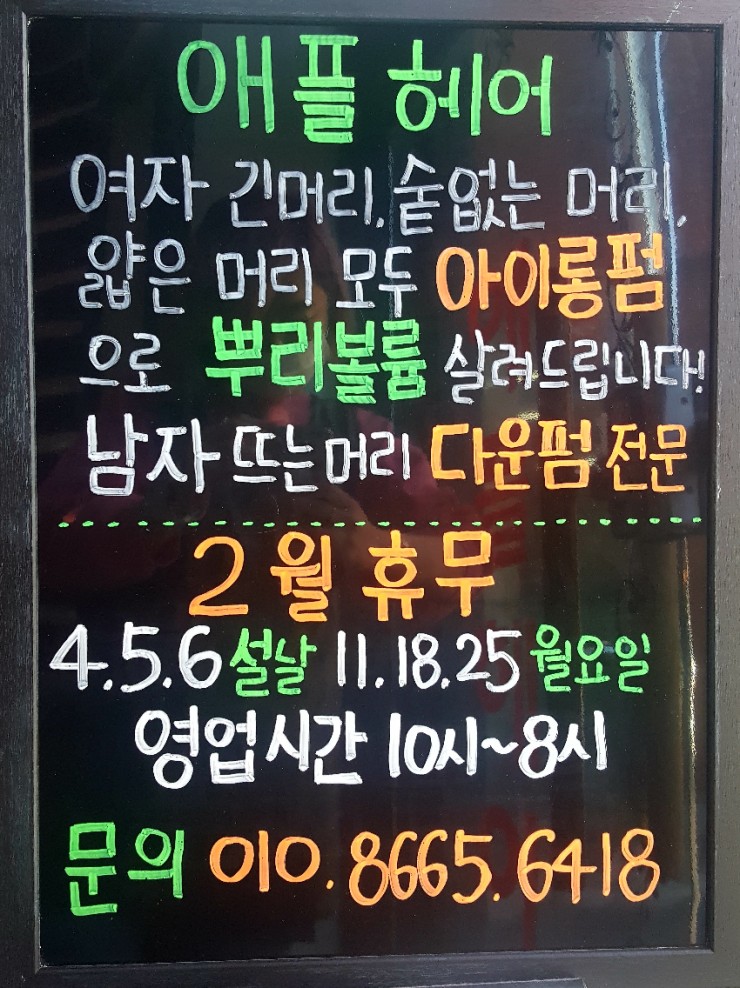 애플 헤어
여자 긴머리. 숱없는 머리.
얇은 머리 모두 아이롱펌
으로 뿌리볼륨 살려드립니다!
남자 뜨는머리 다운펌 전문
2월 휴무
4.5.6 설날 11.18.25 월요일
영업시간 10시~8시
문의 010.8665.6418